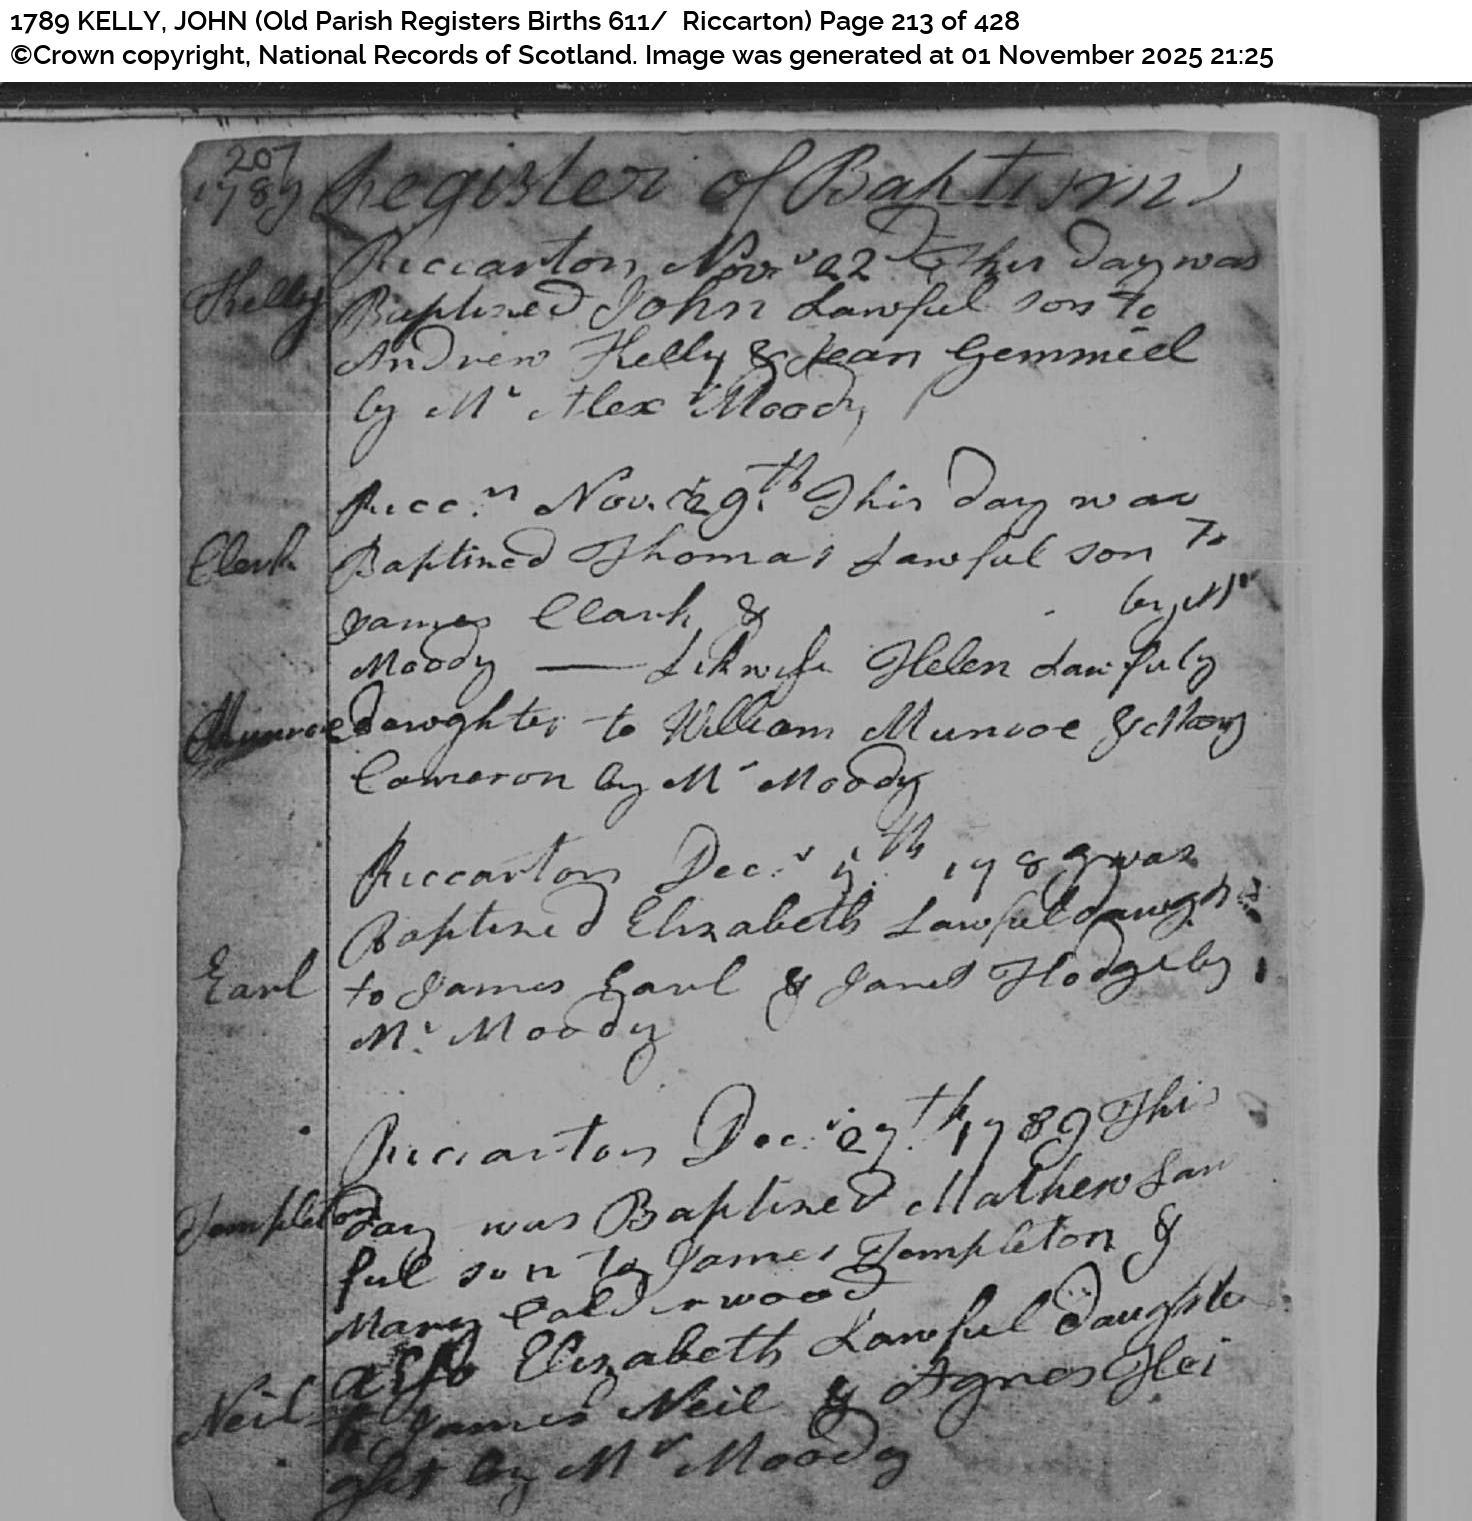 1789 KELLY, JOHN (Old Parish Registers Births 611/ Riccarton) Page 213 of 428
©Crown copyright, National Records of Scotland. Image was generated at 01 November 2025 21:25
207
1789 Register of Baptisms
Riccarton Novr 22d This day was
Kelly Baptized John Lawful son to
Andrew Kelly & Jean Gemmiel
by Mr Alexr Moody
Riccn Nov. 29th This day was
Clark Baptized Thomas Lawful son To
James Clark & by Mr
Moody — Likwise Helen Lawfuly
Munroe dawghter to William Munroe & Mary
Cameron by Mr Moody
Riccarton Decr th 1789 was
Baptized Elizabeth Lawful dawghr
Earl to James Earl & Janet Hodge by
Mr Moody
Riccarton Decr 27th 1789 This
Templeton day was Baptized Mathew Law
ful son to James Templeton &
Mary Calderwood
also Elizabeth Lawful daughter
Neil to James Neil & Agnes Hei
ght by Mr Moody